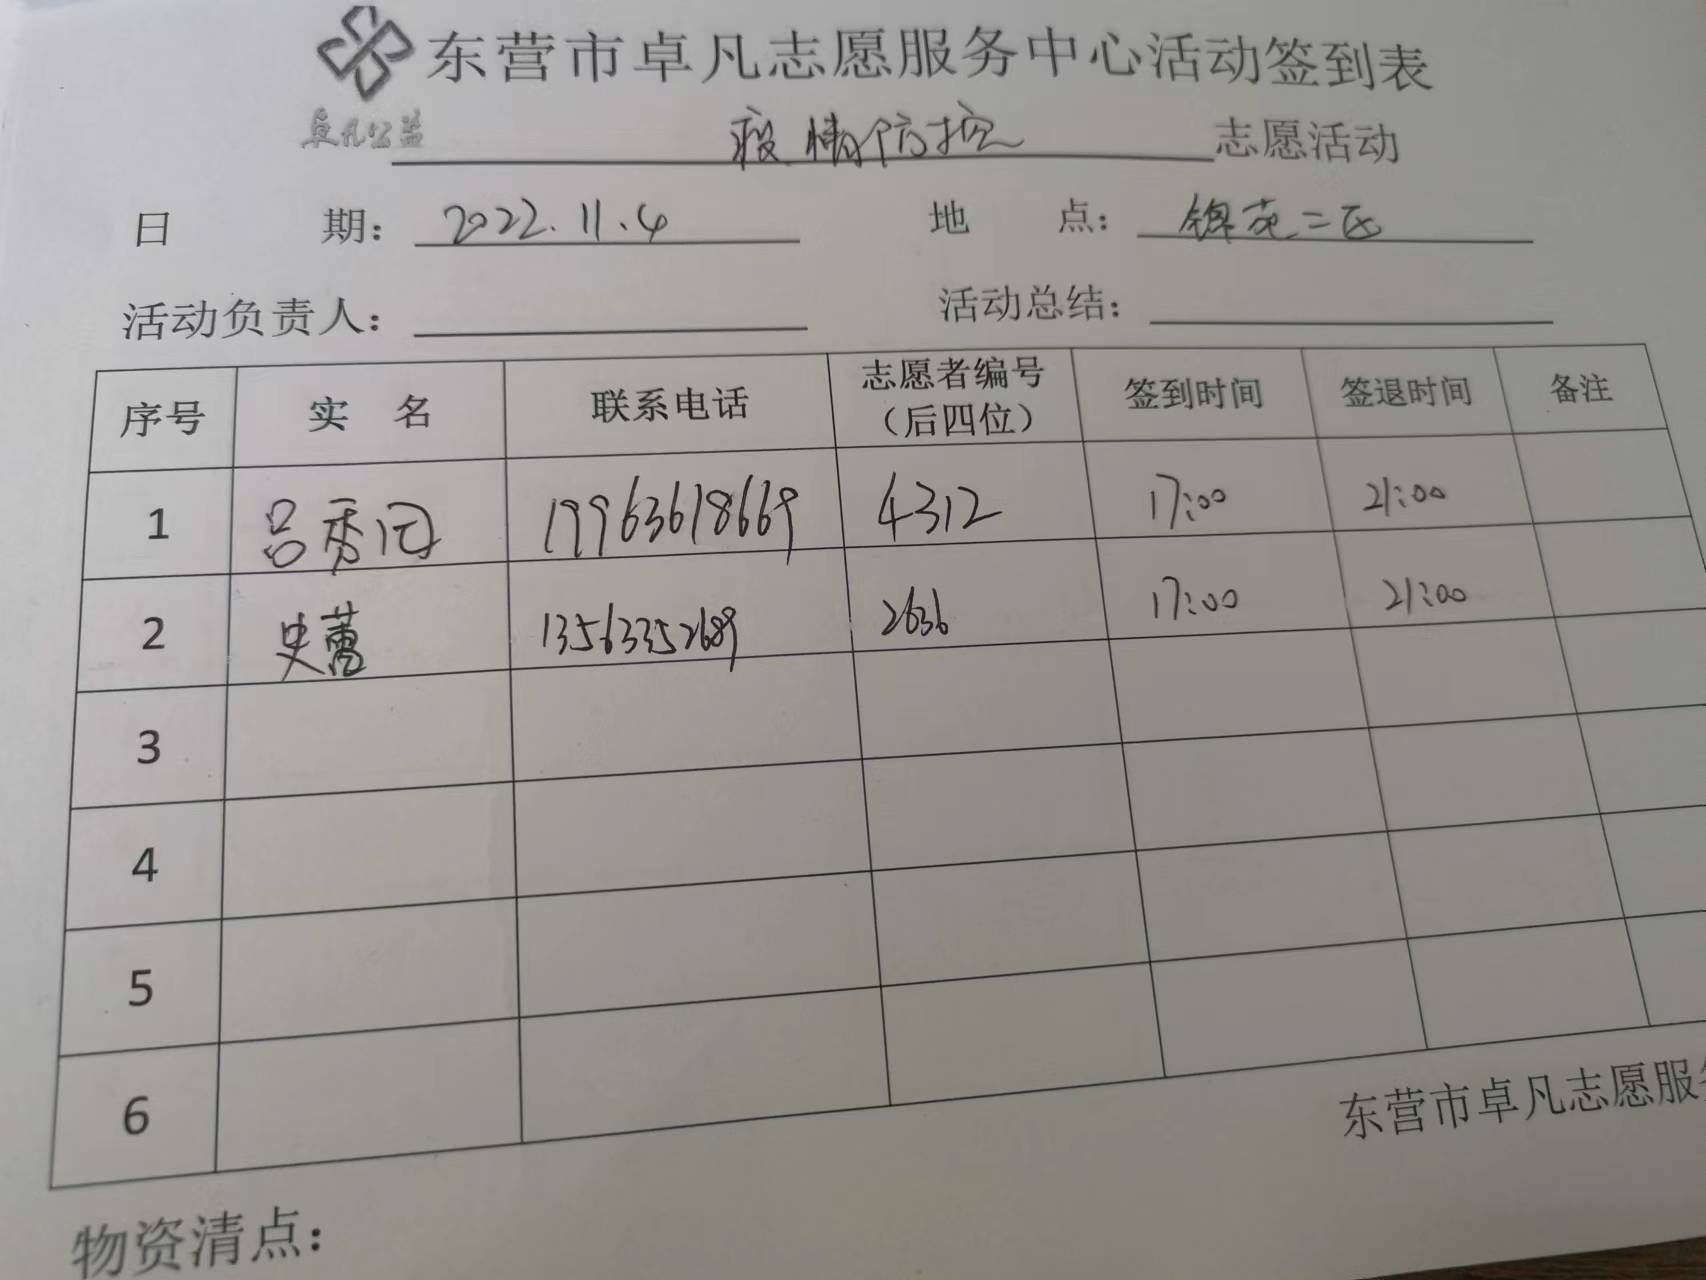 东营市卓凡志愿服务中心活动签到表
卓凡公益
疫情防控 志愿活动
日 期: 2022.11.4 地 点: 锦苑二区
活动负责人: 活动总结:
序号 实 名 联系电话 志愿者编号(后四位) 签到时间 签退时间 备注
1 吕秀 19963618669 4312 17:00 21:00
2 史蕾 13563352689 2636 17:00 21:00
3
4
5
6
东营市卓凡志愿服
物资清点: